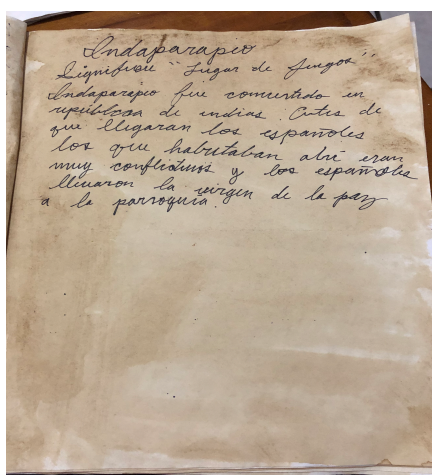 Indaparapeo
Significa "Lugar de juegos"
Indaparapeo fue convertido en
república de indias. Antes de
que llegaran los españoles
los que habitaban ahí eran
muy conflictivos y los españoles
llevaron la virgen de la paz
a la parroquia.